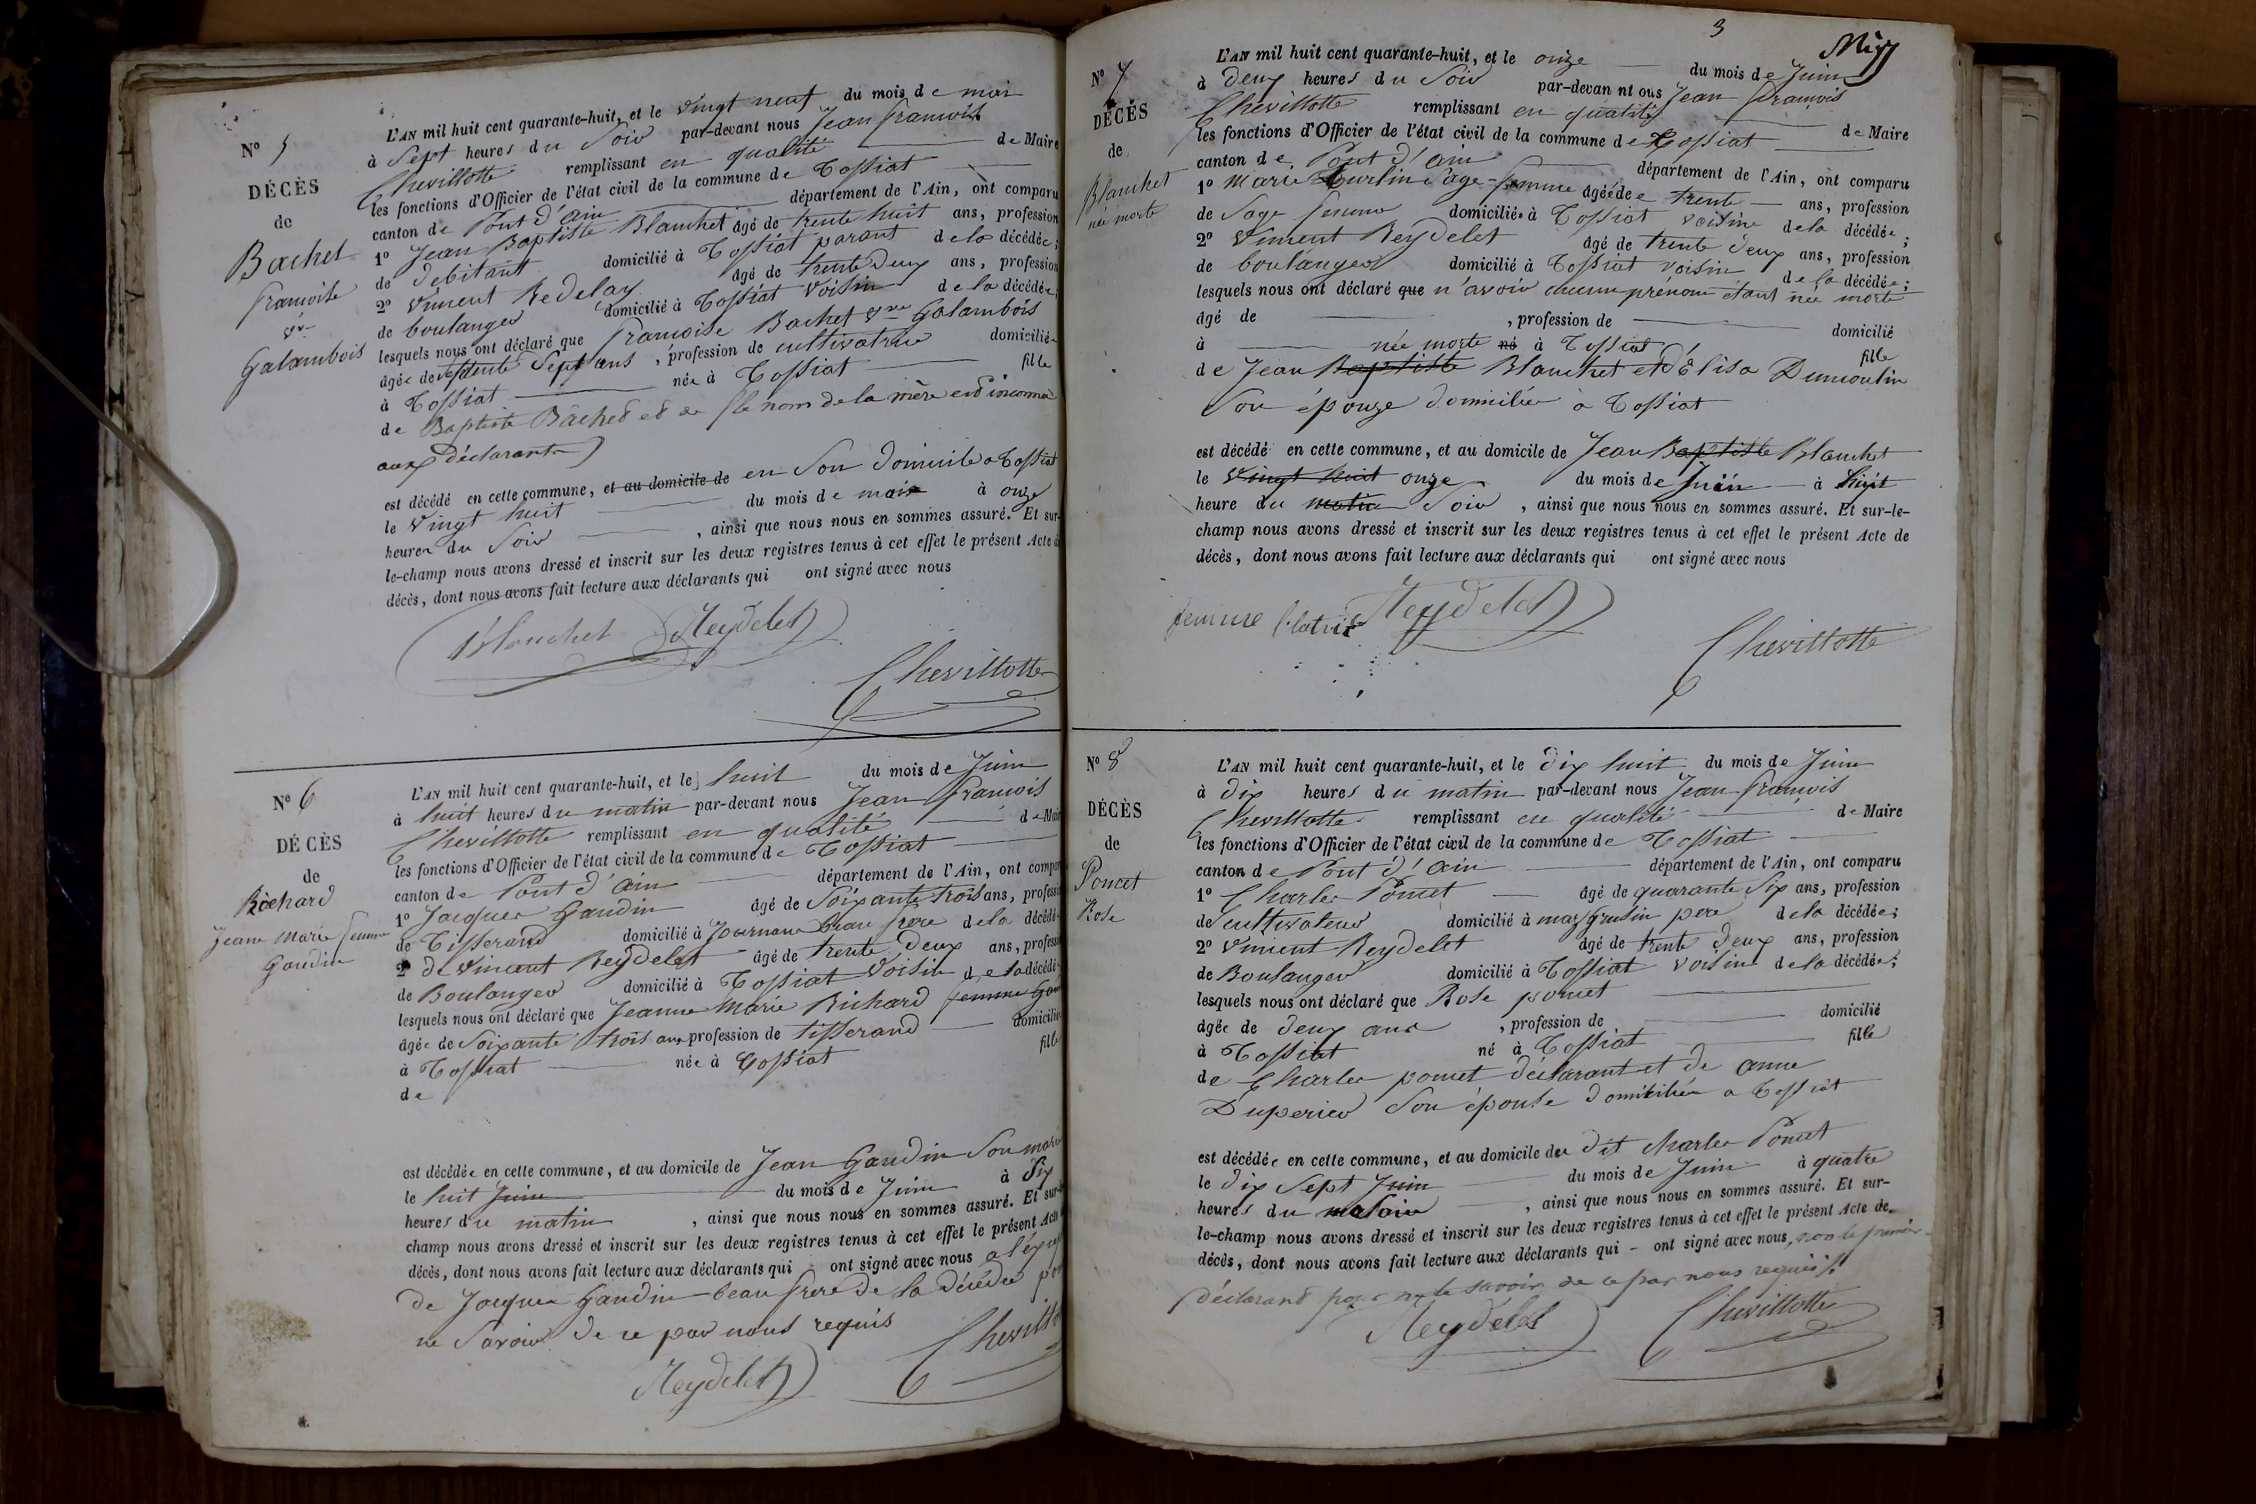 N° 5
DÉCÈS
de
Bachet
francoise
vve
Galambois
L'AN mil huit cent quarante-huit, et le vingt neuf du mois de mai
à Sept heures du Soir par-devant nous Jean francois
Chevillotte remplissant en qualité de Maire
les fonctions d'Officier de l'état civil de la commune de Tossiat
canton de Pont d'ain département de l'Ain, ont comparu
1° Jean Baptiste Blanchet âgé de trente huit ans, profession
de debitant domicilié à Tossiat parant de la décédée;
2° Vincent Redelay âgé de trente deux ans, profession
de boulanger domicilié à Tossiat Voisin de la décédée;
lesquels nous ont déclaré que francoise Bachet vve Galambois
âgée de septente Sept ans, profession de cultivatrice domiciliée
à Tossiat née à Tossiat fille
de Baptiste Bâchet et de (le nom de la mère est inconnu
aux déclarants)
est décédé en cette commune, et au domicile de en Son domicile a Tossiat
le vingt huit du mois de mai à onze
heures du Soir, ainsi que nous nous en sommes assuré. Et sur-
le-champ nous avons dressé et inscrit sur les deux registres tenus à cet effet le présent Acte de
décès, dont nous avons fait lecture aux déclarants qui ont signé avec nous
Blanchet Reydelet
Chevillotte
N° 6
DÉCÈS
de
Richard
Jeanne Marie femme
Gaudin
L'AN mil huit cent quarante-huit, et le huit du mois de Juin
à huit heures du matin par-devant nous Jean francois
Chevillotte remplissant en qualité de Maire
les fonctions d'Officier de l'état civil de la commune de Tossiat
canton de Pont d'ain département de l'Ain, ont compar
1° Jacques Gaudin âgé de Soixante trois ans, profess
de Tisserand domicilié à Journans beau frère de la décédé
2° de Vincent Reydelet âgé de trente deux ans, profess
de Boulanger domicilié à Tossiat Voisin de la décédé
lesquels nous ont déclaré que Jeanne Marie Richard femme Gau
âgée de Soixante trois ans profession de tisserand domicilié
à Tossiat née à Tossiat fille
de
est décédée en cette commune, et au domicile de Jean Gaudin Son mari
le huit Juin du mois de Juin à Six
heures du matin, ainsi que nous nous en sommes assuré. Et sur-le-
champ nous avons dressé et inscrit sur les deux registres tenus à cet effet le présent Acte
décès, dont nous avons fait lecture aux déclarants qui ont signé avec nous a l'exep
de Jacques Gaudin beau frere de la décédée po
ne Savoir de ce par nous requis
Reydelet Chevillo
3
N° 7
DÉCÈS
de
Blanchet
née morte
L'AN mil huit cent quarante-huit, et le onze du mois de Juin
à deux heures du Soir par-devan nt ous Jean francois
Chevillotte remplissant en qualité de Maire
les fonctions d'Officier de l'état civil de la commune de Tossiat
canton de Pont d'ain département de l'Ain, ont comparu
1° Marie Sage-femme âgée de trente ans, profession
de Sage femme domiciliée à Tossiat voisine de la décédée;
2° Vincent Reydelet âgé de trente deux ans, profession
de boulanger domicilié à Tossiat voisin de la décédée;
lesquels nous ont déclaré que n'avoir aucun prénom étant née morte
âgé de , profession de domicilié
à née morte né à Tossiat fille
de Jean Baptiste Blanchet et d'élisa Dumoulin
Son épouze domiciliée a Tossiat
est décédé en cette commune, et au domicile de Jean Baptiste Blanchet
le vingt huit onze du mois de Juin à huit
heure du matin Soir, ainsi que nous nous en sommes assuré. Et sur-le-
champ nous avons dressé et inscrit sur les deux registres tenus à cet effet le présent Acte de
décès, dont nous avons fait lecture aux déclarants qui ont signé avec nous
femme Reydelet
Chevillotte
N° 8
DÉCÈS
de
Poncet
Rose
L'AN mil huit cent quarante-huit, et le dix huit du mois de Juin
à dix heures du matin par-devant nous Jean francois
Chevillotte remplissant en qualité de Maire
les fonctions d'Officier de l'état civil de la commune de Tossiat
canton de Pont d'ain département de l'Ain, ont comparu
1° Charles Poncet âgé de quarante Six ans, profession
de cultivateur domicilié à mas grusin pere de la décédée;
2° Vincent Reydelet âgé de trente deux ans, profession
de Boulanger domicilié à Tossiat voisin de la décédée;
lesquels nous ont déclaré que Rose poncet
âgée de deux ans, profession de domicilié
à Tossiat né à Tossiat fille
de Charles poncet déclarant et de anne
Duperier Son épouse domiciliée a Tossiat
est décédée en cette commune, et au domicile du dit charles Poncet
le dix Sept Juin du mois de Juin à quatre
heures du Soir, ainsi que nous nous en sommes assuré. Et sur-
le-champ nous avons dressé et inscrit sur les deux registres tenus à cet effet le présent Acte de
décès, dont nous avons fait lecture aux déclarants qui ont signé avec nous, non le premier
déclarant pour ne le savoir de ce par nous requis.
Reydelet Chevillotte